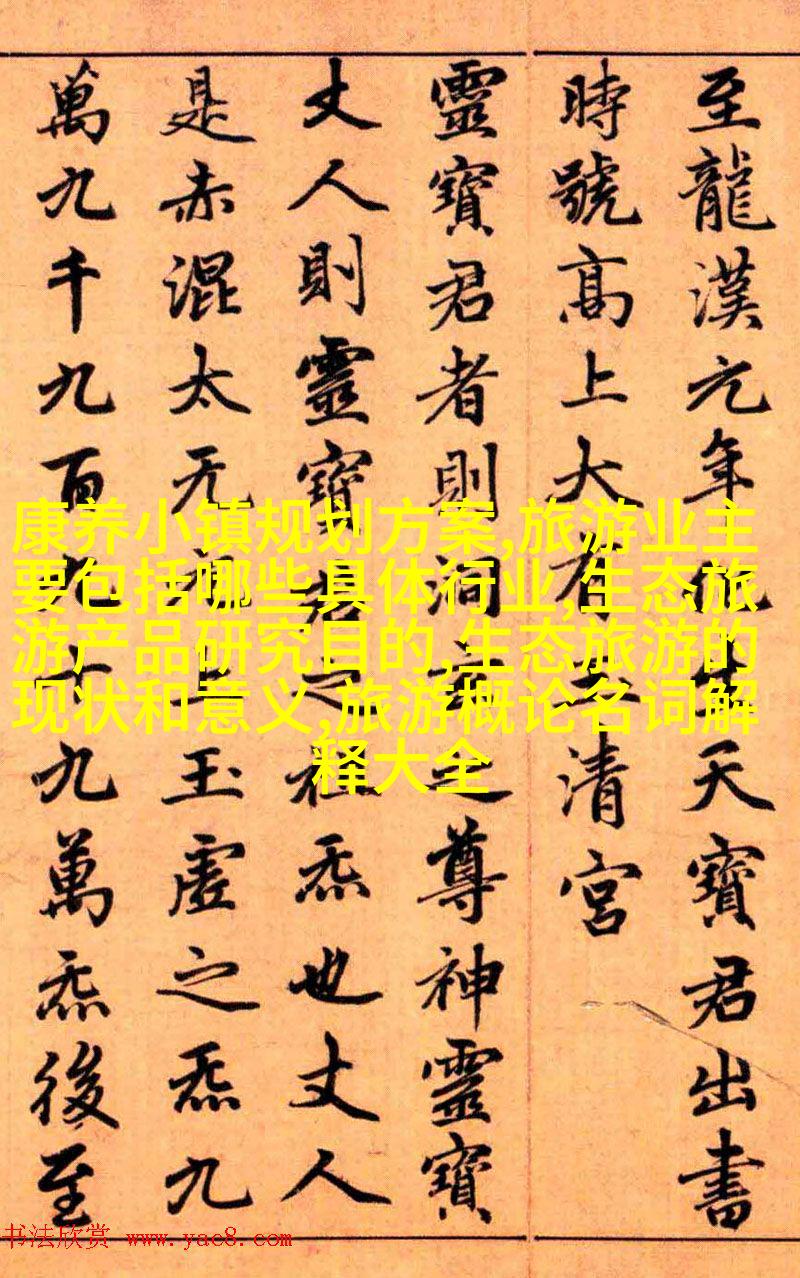 至龍漢元年化生天寶君出書
時號高上大有玉清宮
靈寶君者則洞玄之尊神靈寶
丈人則靈寶君之祖炁也丈人
是赤混太无元上玉虛之炁九
萬九千九百九十九萬炁後至
康养小镇规划方案,旅游业主
要包括哪些具体行业,生态旅
游产品研究目的,生态旅游的
现状和意义,旅游概论名词解
释大全
书法欣赏 www.yac8.com